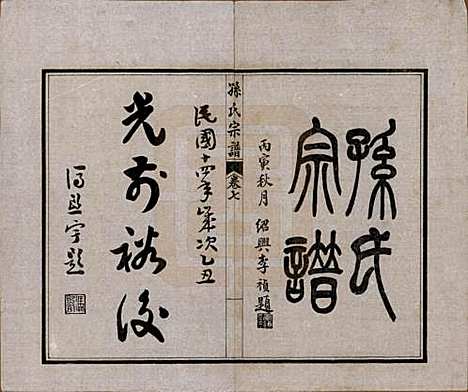 孫氏
宗譜
丙寅秋月
紹興李禎題
孫氏宗譜
卷七
民國十四年歲次乙丑
光前裕後